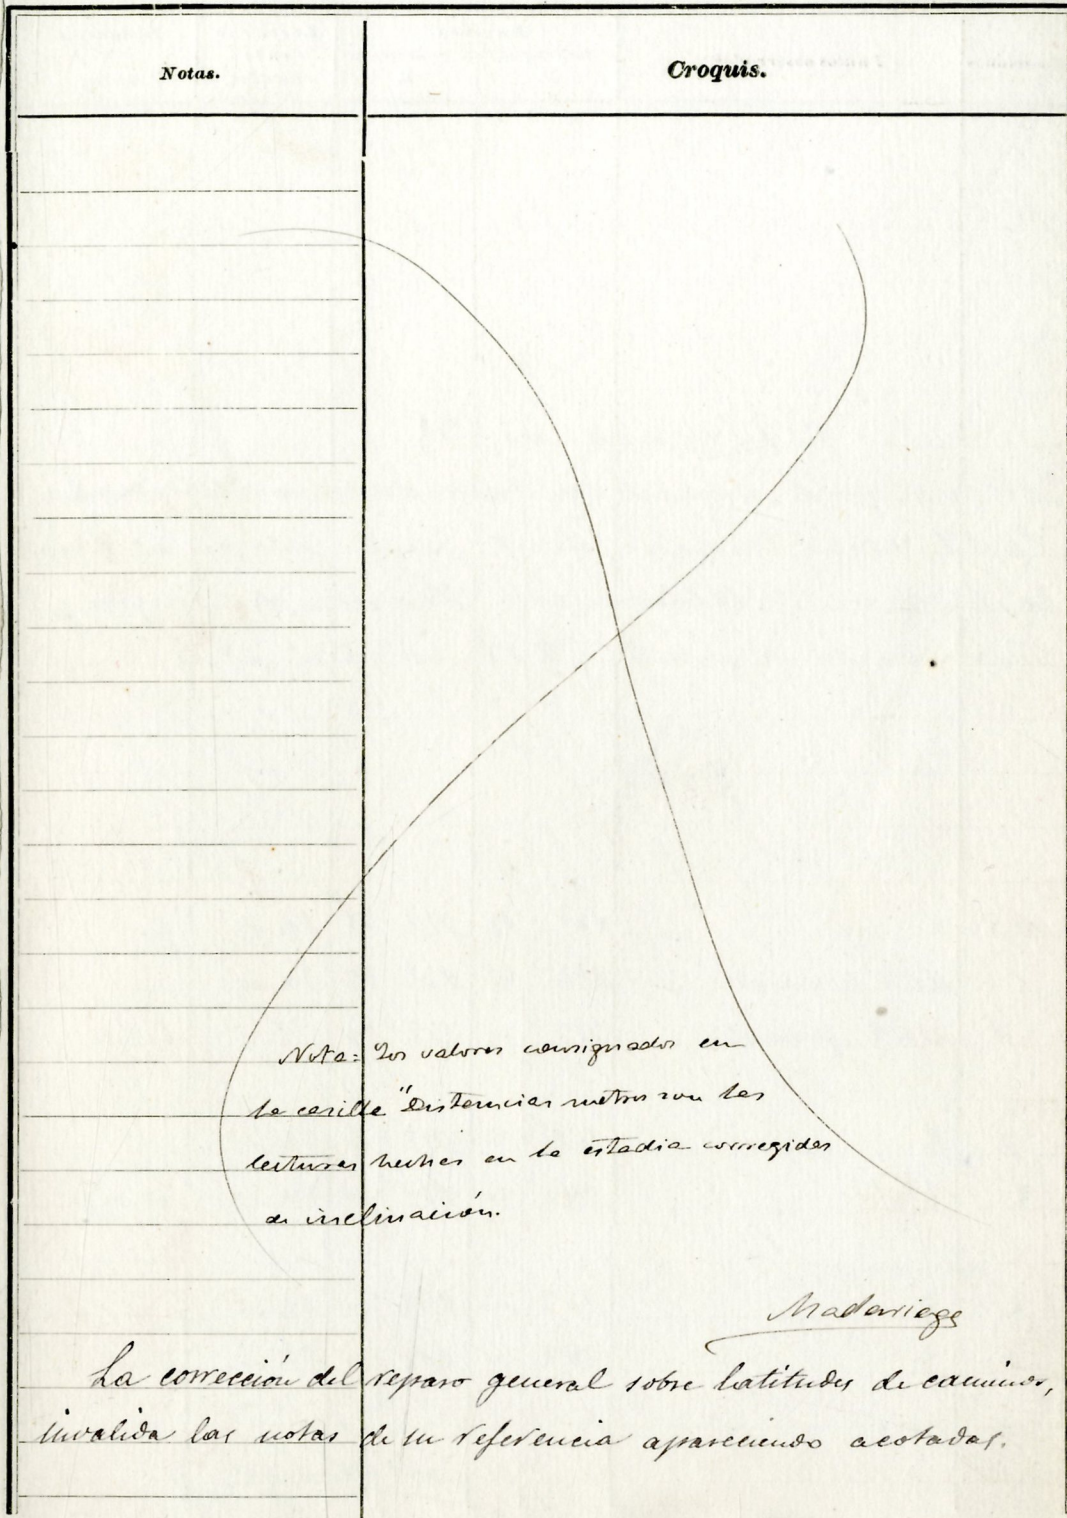 Notas.
Croquis.
Nota: Los valores consignados en
la casilla "Distancias metros son las
lecturas hechas en la estadia corregidas
de inclinación.
Madariaga
La corrección del reparo general sobre latitudes de caminos,
invalida las notas de su referencia apareciendo acotadas.